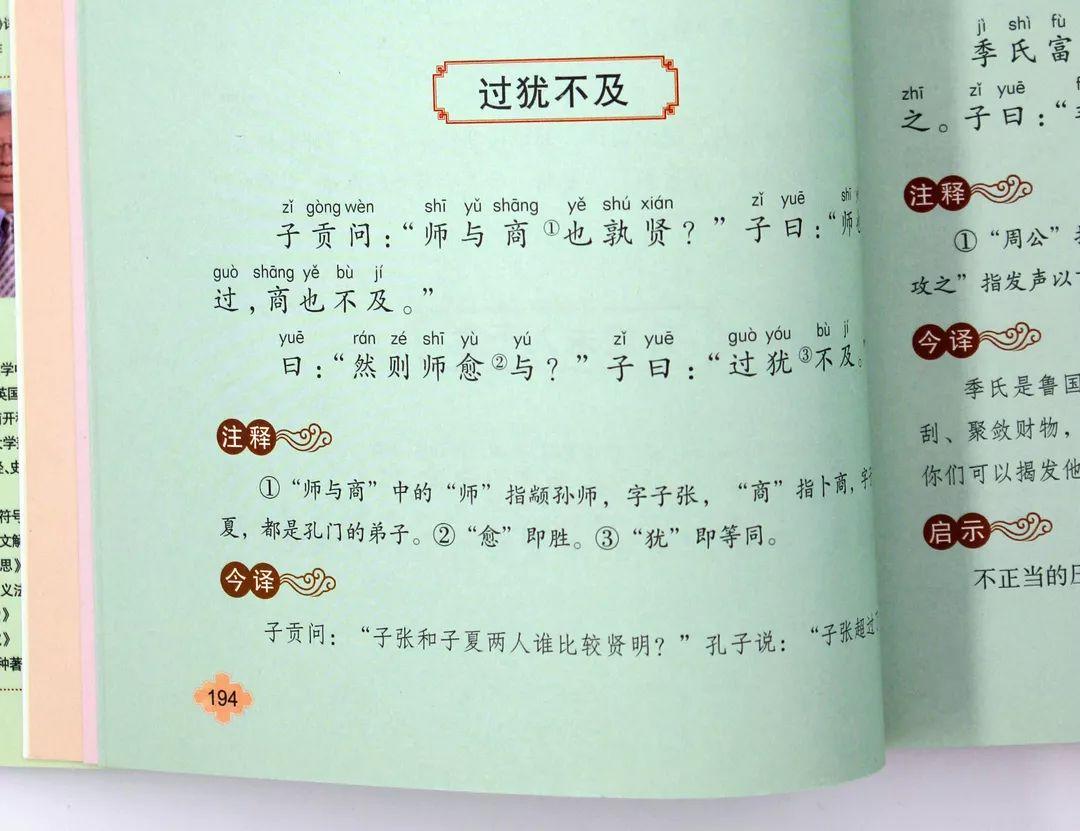 过犹不及
zǐ gòng wèn shī yǔ shāng yě shú xián zǐ yuē shī
子贡问：“师与商①也孰贤？”子曰：“师
guò shāng yě bù jí
过，商也不及。”
yuē rán zé shī yù yú zǐ yuē guò yóu bù jí
曰：“然则师愈②与？”子曰：“过犹③不及。”
注释
①“师与商”中的“师”指颛孙师，字子张，“商”指卜商，字
夏，都是孔门的弟子。②“愈”即胜。③“犹”即等同。
今译
子贡问：“子张和子夏两人谁比较贤明？”孔子说：“子张超过
194
jì shì fù
季氏富
zhī zǐ yuē
之。子曰：“
注释
①“周公”
攻之”指发声以
今译
季氏是鲁国
刮、聚敛财物，
你们可以揭发他
启示
不正当的
英国
符号
文解
思》
义法
》
》
种著